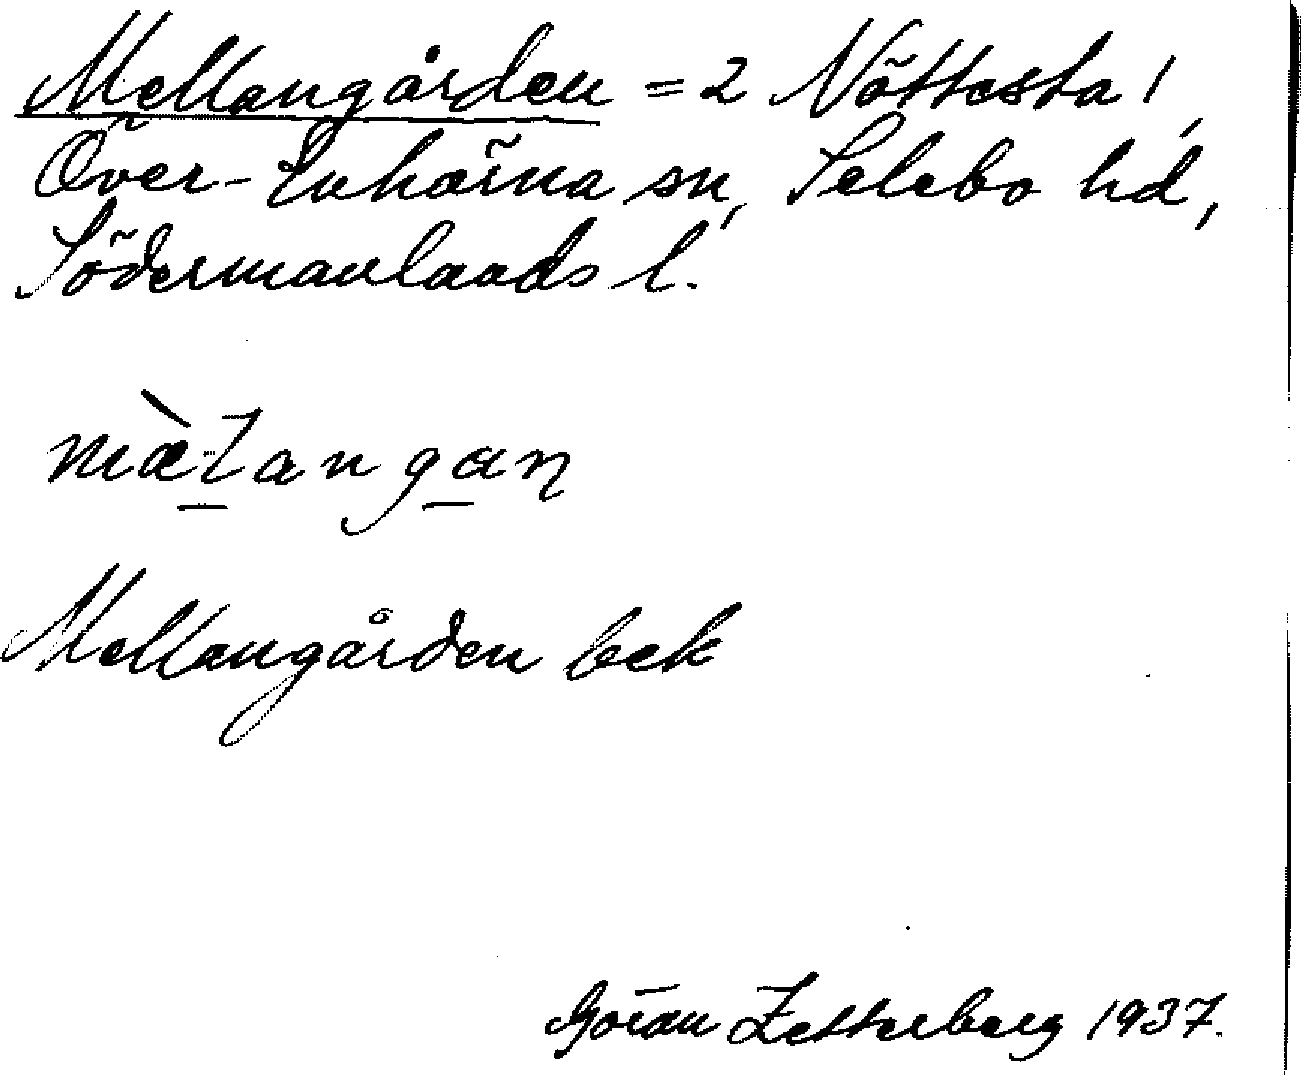 Mellangården = 2 Nöttesta 1,
Över-Enhörna sn, Selebo hd,
Södermanlands l.
Mellangården bek
Göran Zetterberg 1937.